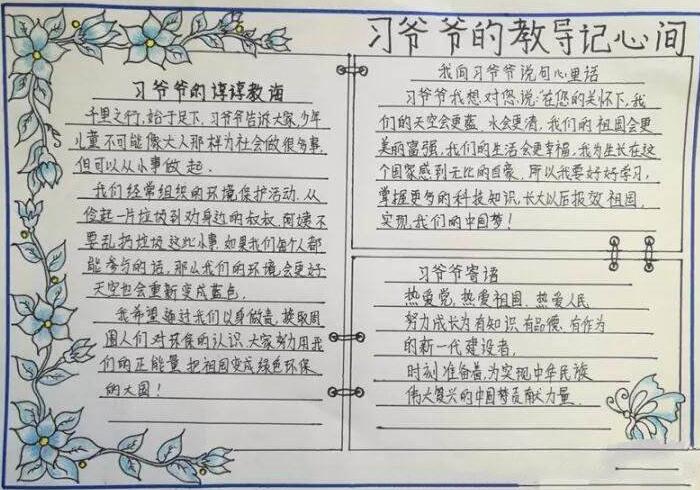 习爷爷的教导记心间
习爷爷的谆谆教诲
千里之行,始于足下,习爷爷告诉大家,少年
儿童不可能像大人那样为社会做很多事,
但可以从小事做起.
我们经常组织的环境保护活动.从
捡起一片垃圾到劝身边的叔叔.阿姨不
要乱扔垃圾这些小事.如果我们每个人都
能参与的话,那么我们的环境会更好
天空也会重新变成蓝色.
我希望通过我们以身做责,换取周
围人们对环保的认识.大家努力用我
们的正能量.把祖国变成绿色环保
的大国!
我向习爷爷说句心里话
习爷爷我想对您说:"在您的关怀下,我
们的天空会更蓝.水会更清,我们的祖国会更
美丽富强,我们的生活会更幸福,我为生长在这
个国家感到无比的自豪.所以我要好好学习,
掌握更多的科技知识,长大以后报效祖国.
实现我们的中国梦!
习爷爷寄语
热爱党.热爱祖国.热爱人民
努力成长为有知识.有品德.有作为
的新一代建设者,
时刻准备着,为实现中华民族
伟大复兴的中国梦贡献力量.